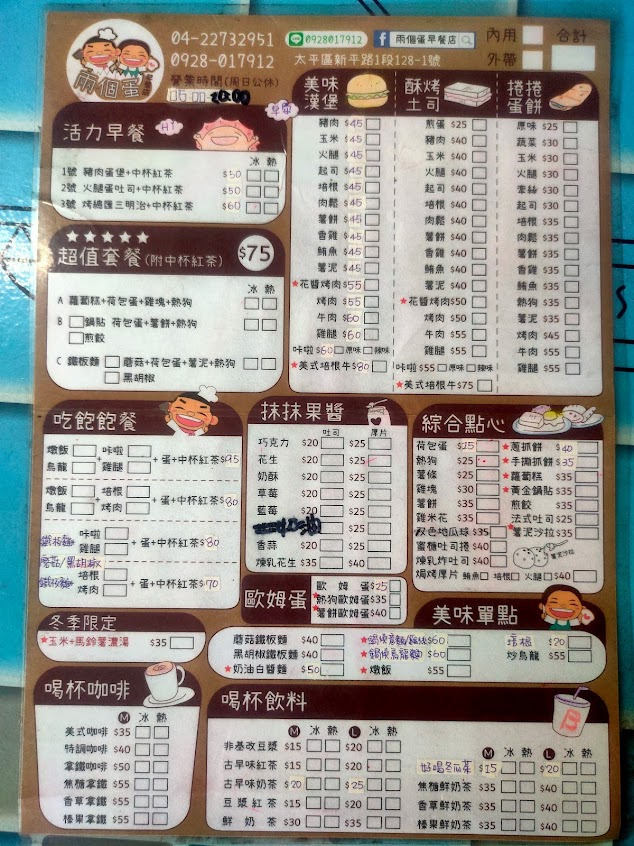 兩個蛋
早餐店
04-22732951
0928-017912
0928017912
兩個蛋早餐店
太平區新平路1段128-1號
營業時間(周日公休)
內用
外帶
合計
活力早餐
Hi
早安
冰 熱
1號 豬肉蛋堡+中杯紅茶 $50
2號 火腿蛋吐司+中杯紅茶 $50
3號 烤總匯三明治+中杯紅茶 $60
超值套餐(附中杯紅茶) $75
冰 熱
A 蘿蔔糕+荷包蛋+雞塊+熱狗
B 鍋貼 荷包蛋+薯餅+熱狗
煎餃
C 鐵板麵 蘑菇+荷包蛋+薯泥+熱狗
黑胡椒
美味漢堡
豬肉 $45
玉米 $45
火腿 $45
起司 $45
培根 $45
肉鬆 $45
薯餅 $45
香雞 $45
鮪魚 $45
薯泥 $45
★花醬烤肉$55
烤肉 $55
牛肉 $60
雞腿 $60
咔啦$60 原味 辣味
★美式培根牛$80
酥烤吐司
煎蛋 $25
豬肉 $40
玉米 $40
火腿 $40
起司 $40
培根 $40
肉鬆 $40
薯餅 $40
香雞 $40
鮪魚 $40
薯泥 $40
★花醬烤肉$50
烤肉 $50
牛肉 $55
雞腿 $55
咔啦$55 原味 辣味
★美式培根牛$75
捲捲蛋餅
原味 $25
蔬菜 $30
玉米 $30
火腿 $30
牽絲 $30
起司 $30
培根 $35
肉鬆 $35
薯餅 $35
香雞 $35
鮪魚 $35
熱狗 $35
薯泥 $35
烤肉 $45
牛肉 $55
雞腿 $55
吃飽飽餐
燉飯 咔啦
烏龍 + 雞腿 +蛋+中杯紅茶$95
燉飯 培根
烏龍 + 烤肉 +蛋+中杯紅茶$80
鐵板麵 咔啦
雞腿 + 蛋+中杯紅茶$80
蘑菇/黑胡椒
鐵板麵 培根
烤肉 + 蛋+中杯紅茶$70
抹抹果醬
吐司 厚片
巧克力 $20 $25
花生 $20 $25
奶酥 $20 $25
草莓 $20 $25
藍莓 $20 $25
$20 $25
香蒜 $20 $25
煉乳花生 $35 $40
綜合點心
荷包蛋 $15
熱狗 $25
薯條 $25
雞塊 $30
薯餅 $35
雞米花 $35
双色地瓜球$35
蜜糖吐司捲$40
煉乳炸吐司$40
焗烤厚片 鮪魚 火腿 $40
★蔥抓餅 $40
★手撕抓餅$35
★蘿蔔糕 $35
★黃金鍋貼$35
煎餃 $35
法式吐司$25
★薯泥沙拉$35
薯泥沙拉
歐姆蛋
歐姆蛋$25
★熱狗歐姆蛋$35
★薯餅歐姆蛋$40
冬季限定
★玉米+馬鈴薯濃湯 $35
美味單點
蘑菇鐵板麵 $40
黑胡椒鐵板麵 $40
★奶油白醬麵 $50
★鍋燒意麵/雞絲$60
★鍋燒烏龍麵 $60
★燉飯 $55
培根 $20
炒烏龍 $55
喝杯咖啡
M 冰 熱
美式咖啡 $35
特調咖啡 $40
拿鐵咖啡 $50
焦糖拿鐵 $55
香草拿鐵 $55
榛果拿鐵 $55
喝杯飲料
M 冰 熱 L 冰 熱
非基改豆漿 $15 $20
古早味紅茶 $15 $20
古早味奶茶 $20 $25
豆漿紅茶 $15 $20
鮮奶茶 $30 $35
M 冰 熱 L 冰 熱
好喝冬瓜茶 $15 $20
焦糖鮮奶茶 $35 $40
香草鮮奶茶 $35 $40
榛果鮮奶茶 $35 $40